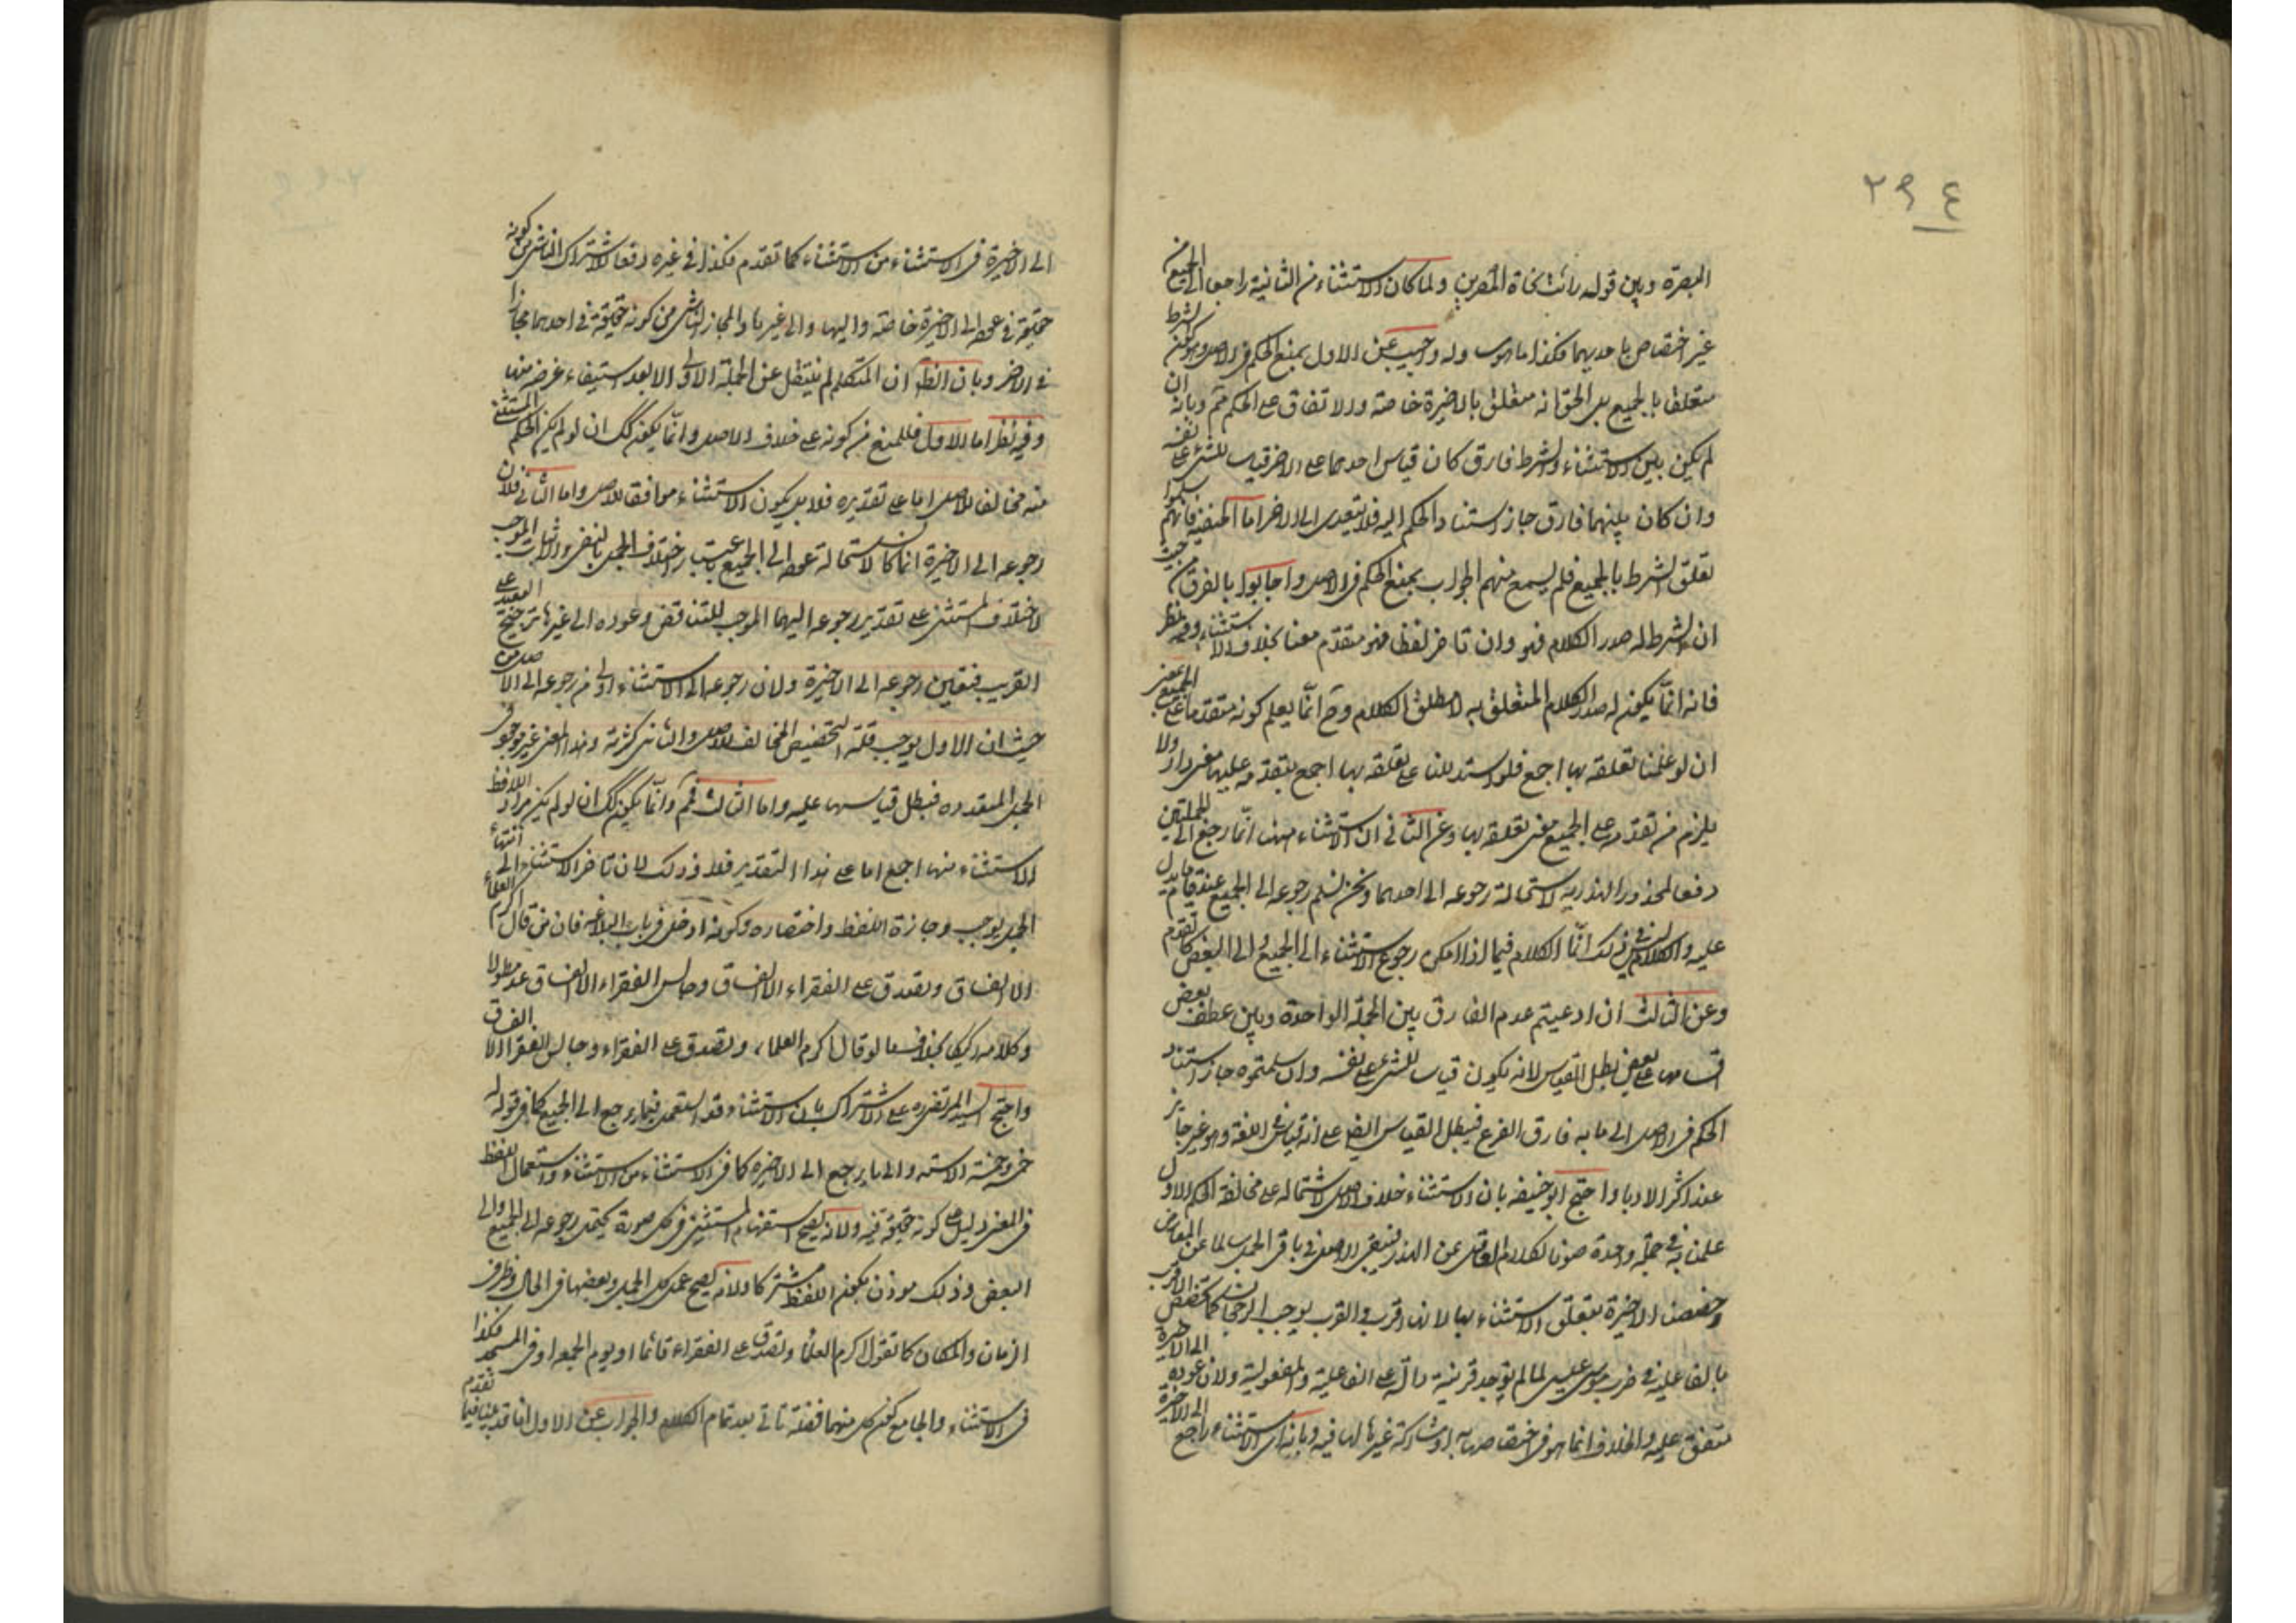 ٢٩٤
البصرة وبين قوله رأيت نحاة المصرين ولما كان الاستثناء من الثانية راجعا الى الجميع من
غير اختصاص باحديهما فكذا ما هو وله واجيب عن الاول بمنع الحكم فى الاصل وهو كون الشرط
متعلقا بالجميع بل الحق انه متعلق بالاخيرة خاصة والاتفاق على الحكم ثم وبانه ان
لم يكن بين الاستثناء والشرط فارق كان قياس احدهما على الاخر قياسا للشئ على نفسه
وان كان بينهما فارق جاز استناد الحكم اليه فلا يتعدى الى الاخر اما الحنفية فانهم سلموا
تعلق الشرط بالجميع فلم يسمع منهم الجواب بمنع الحكم فى الاصل واجابوا بالفرق من حيث
ان الشرط له صدر الكلام فهو وان تاخر لفظا فهو متقدم معنا بخلاف الاستثناء وفيه نظر
فانه انما يكون له صدر الكلام المتعلق به لا مطلق الكلام وح انما يعلم كونه متقدما على الجميع معنى
ان لو علمنا تعلقه بها اجمع فلو استدللنا على تعلقه بها اجمع بتقدمه عليها معنى دار ولا
يلزم من تقدمه على الجميع معنى تعلقه بها وعن الثانى ان الاستثناء هنا انما رجع الى الجملتين
دفعا لمحذور الهذرية لاستحالة رجوعه الى احدهما ونحن نسلم رجوعه الى الجميع عند قيام ما يدل
عليه والكلام ليس فى ذلك انما الكلام فيما اذا امكن رجوع الاستثناء الى الجميع والى البعض كما تقدم
وعن الثالث ان ادعيتم عدم الفارق بين الجملة الواحدة وبين عطف بعض
اقسامها على بعض بطل القياس لانه يكون قياسا للشئ على نفسه وان سلمتموه جاز استناد
الحكم فى الاصل الى ما به فارق الفرع فيبطل القياس ايضا على انه قياس فى اللغة وهو غير جايز
عند اكثر الادبا واحتج ابو حنيفه بان الاستثناء خلاف الاصل لاشتماله على مخالفة الحكم الاول
علمنا به فى جملة واحدة صونا لكلام العاقل عن الهذر فيبقى الاصل فى باقى الجمل سالما عن المعارض
وخصصنا الاخيرة بتعلق الاستثناء بها لانها اقرب والقرب يوجب الرجحان كما تخصص الاقرب
بالفاعلية فى ضرب موسى عيسى لما لم توجد قرينة دالة على الفاعلية والمفعولية ولان عوده الى الاخيرة
متفق عليه والخلاف انما هو فى اختصاصها به او مشاركة غيرها لها فيه وبانه اى الاستثناء راجع الى الاخيرة
الى الاخيرة فى الاستثناء من الاستثناء كما تقدم فكذا فى غيره دفعا للاشتراك الناشى من كونه
حقيقة فى عوده الى الاخيرة خاصة واليها والى غيرها والمجاز الناشى من كونه حقيقة فى احدهما مجازا
فى الاخر وبان الظ ان المتكلم لم ينتقل عن الجملة الاولى الا بعد استيفاء غرضه منها
وفيه نظر اما الاول فللمنع من كونه على خلاف الاصل وانما يكون كك ان لو لم يكن الحكم المستثنى
منه مخالفا للاصل اما على تقديره فلا بل يكون الاستثناء موافقا للاصل واما الثانى فلان
رجوعه الى الاخيرة انما كان لاستحالة عوده الى الجميع باعتبار اختلاف الجمل بالنفى والاثبات الموجب
لاختلاف المستثنى على تقدير رجوعه اليهما الموجب للتناقض وعوده الى غيرها ترجيح البعيد على
القريب فتعين رجوعه الى الاخيرة ولان رجوعه الى الاستثناء اولى من رجوعه الى الاصل من
حيث ان الاول يوجب قلة التخصيص المخالف للاصل والثانى كثرته وهذا المعنى غير موجود فى
الجمل المتعدده فبطل قياسها عليه واما الثالث فمم وانما يكون كك ان لو لم يكن مراد اللافظ
الاستثناء منها اجمع اما على هذا التقدير فلا وذلك لان تاخر الاستثناء الى انتهاء
الجمل يوجب وجازة اللفظ واختصاره وكونه ادخل فى باب البلاغه فان من قال اكرم العلماء
الا الفساق وتصدق على الفقراء الا الفساق وجالس الفقراء الا الفساق عد مطولا
وكلامه ركيكا بخلاف ما لو قال اكرم العلماء وتصدق على الفقراء وجالس الفقرا الا الفساق
واحتج السيد المرتضى ره على الاشتراك بان الاستثناء قد استعمل فيما يرجع الى الجميع كما فى قوله
خمسة وخمسة الا ستة والى ما يرجع الى الاخيرة كما فى الاستثناء من الاستثناء واستعمال اللفظ
فى المعنى دليل على كونه حقيقة فيه ولانه يصح استفهام المستثنى فى كل صورة يحتمل رجوعه الى الجميع والى
البعض وذلك موذن بكون اللفظ مشتركا ولانه يصح عمل كل الجمل وبعضها فى الحال وظرف
الزمان والمكان كما تقول اكرم العلما وتصدق على الفقراء قائما او يوم الجمعه او فى المسجد فكذا
فى الاستثناء والجامع كون كل منهما فضلة تاتى بعد تمام الكلام والجواب عن الاول انا قد بينا فيما تقدم